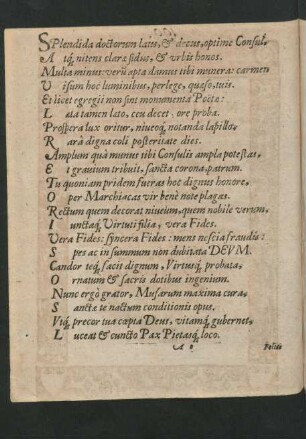 SPlendida doctorum laus, & decus, optime Consul,
Atq́, nitens claræ sidus, & vrbis honos.
Multa minus: verũ apta damus tibi munera: carmen
Visum hoc luminibus, perlege, quæso, tuis.
Et licet egregii non sint monumenta Poëtæ:
Lata tamen lato, ceu decet, ore proba.
Prospera lux oritur, niueoq́, notanda lapillo,
Rarà digna coli posteritate dies.
Amplum quà munus tibi Consulis ampla potestas,
Et grauium tribuit, sancta corona, patrum.
Tu quoniam pridem fueras hoc dignus honore,
O per Marchiacas vir benè note plagas.
Rectum quem decorat niueum, quem nobile verum,
Iunctaq́, Virtuti filia, vera Fides.
Vera Fides; syncera Fides: mens nescia fraudis:
Spes ac in summum non dubitata DEVM.
Candor teq́, facit dignum, Virtusq́, probata,
Ornatum & sacris dotibus ingenium.
Nunc ergò grator, Musarum maxima cura,
Sanctæ te nactum conditionis opus.
Vtq́, precor tua cœpta Deus, vitamq́, gubernet,
Luceat & cuncto Pax Pietasq́, loco.
A 2 Felici